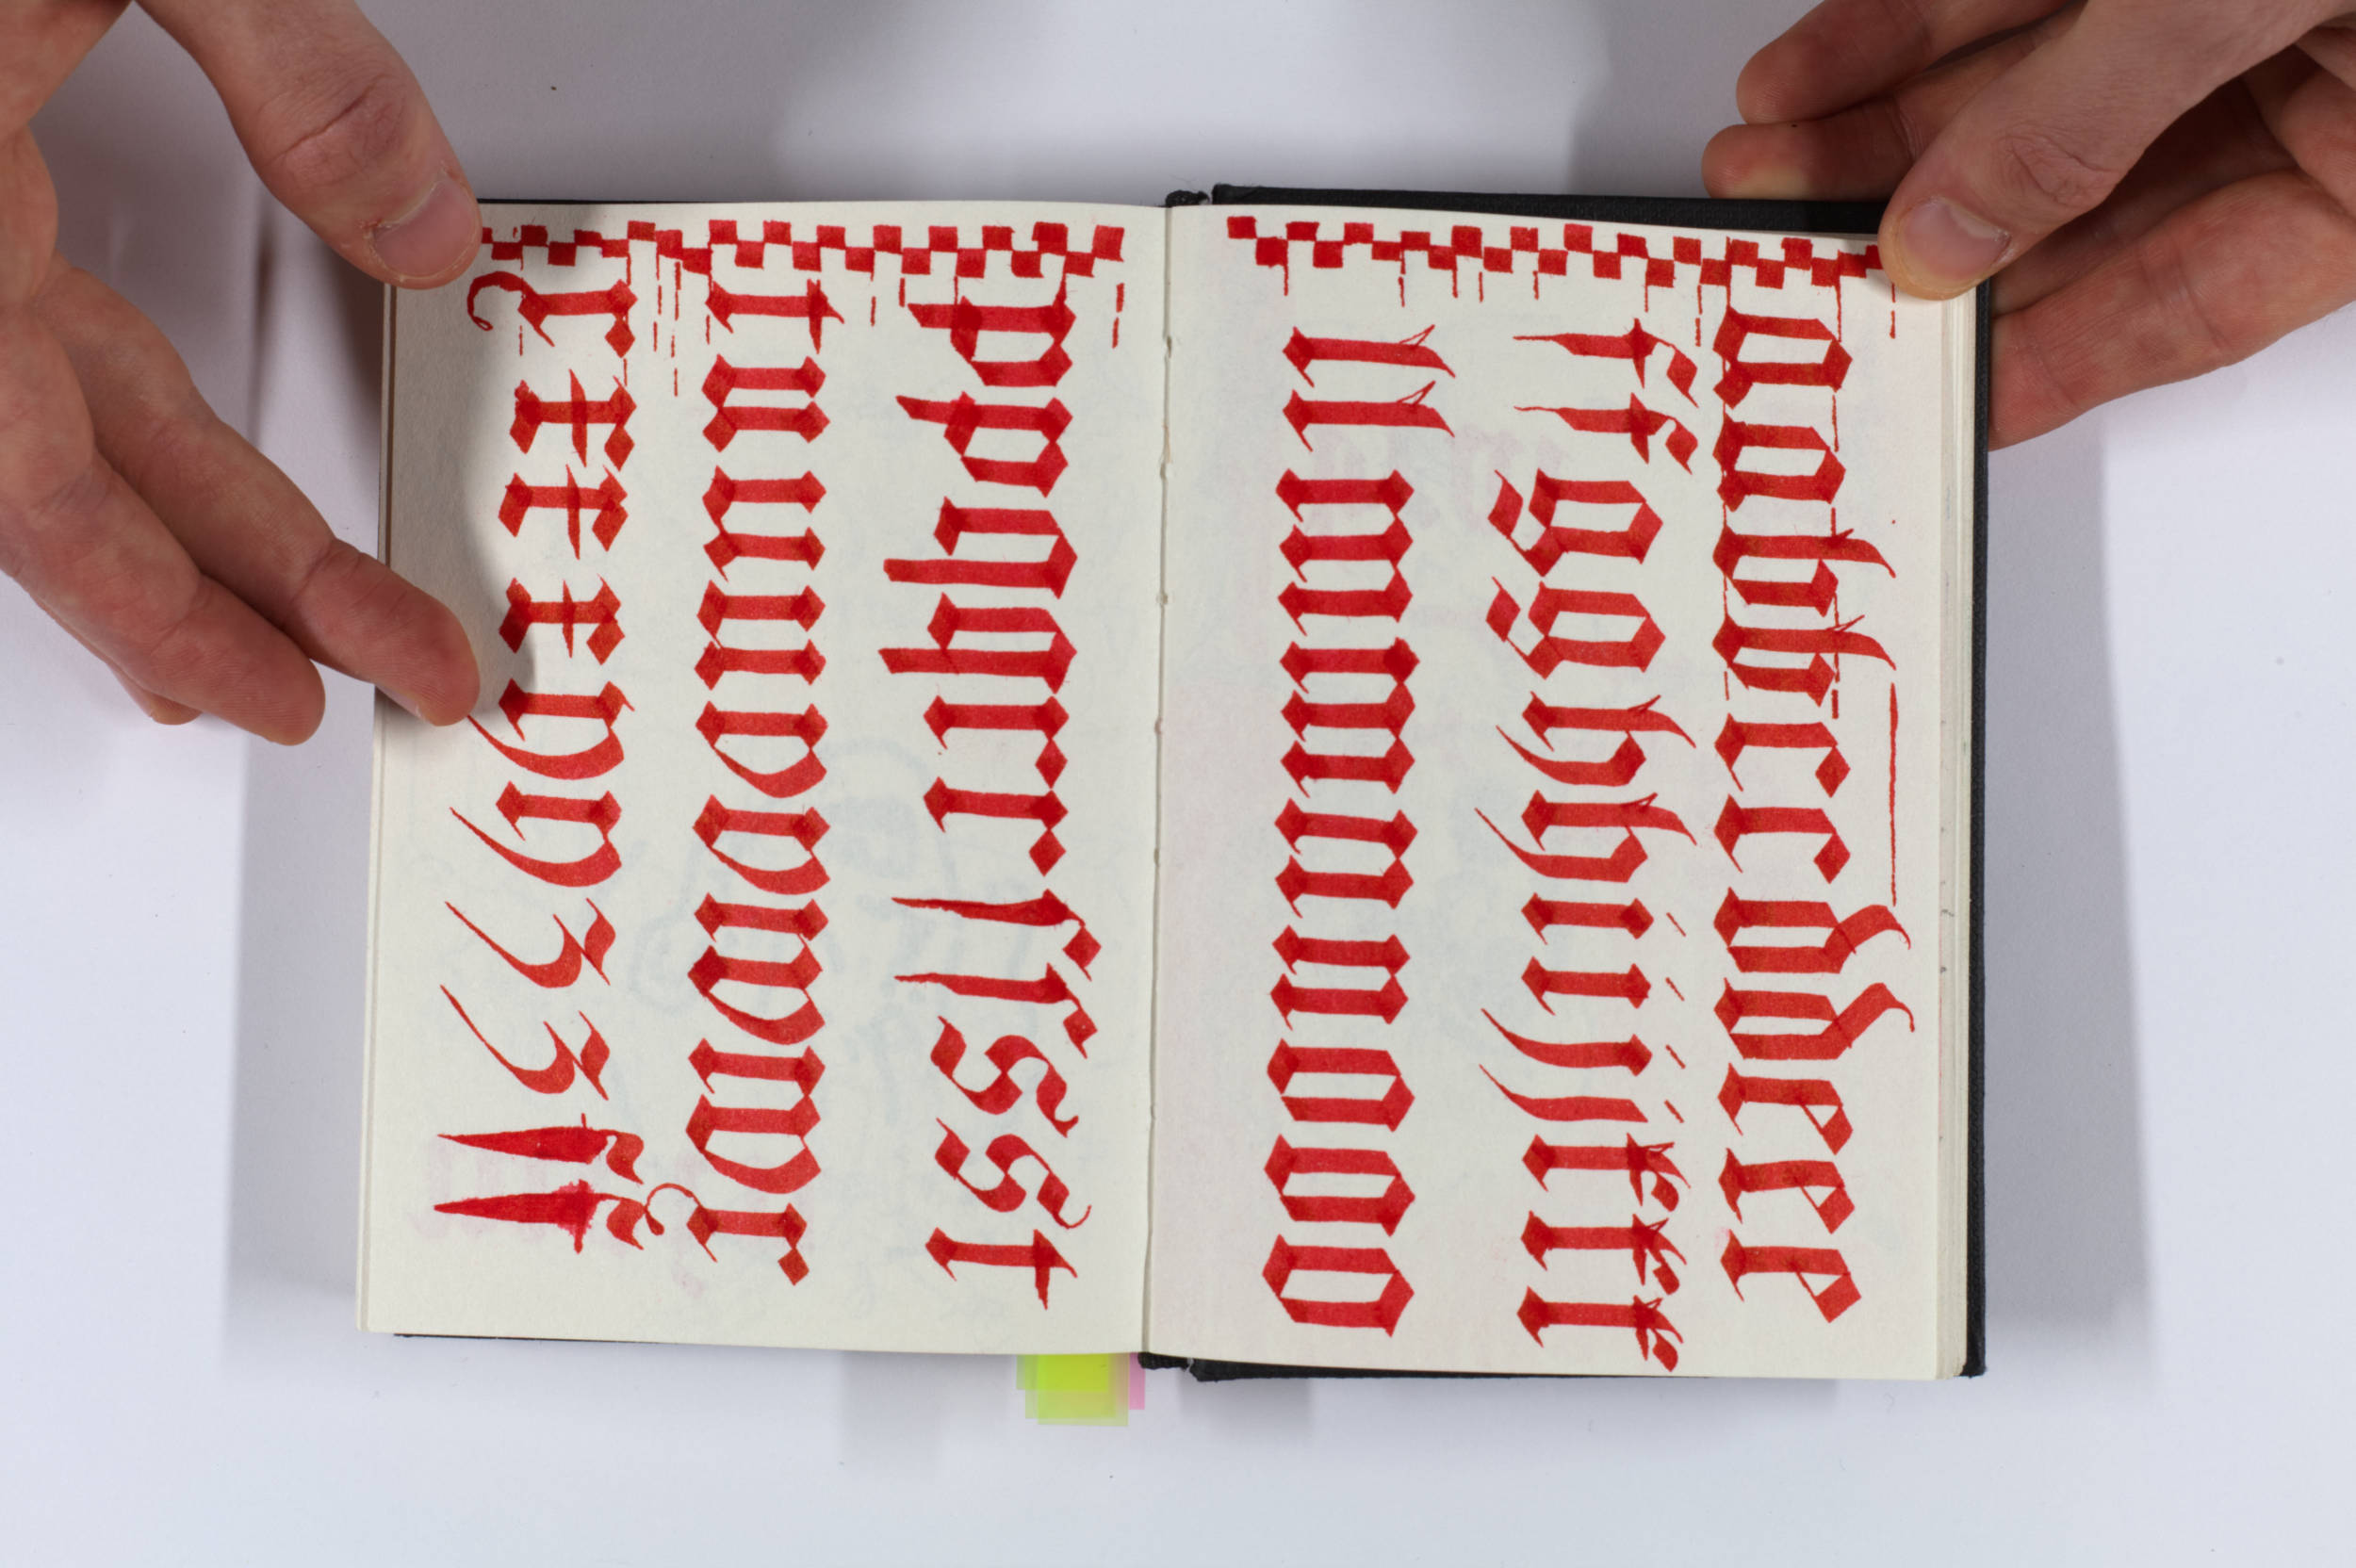 aabbccddeee
ffgghhiijjkkk
llmmnnooo
ppqqrrſſsst
tuuuvvwwx
xxxxyyzzff